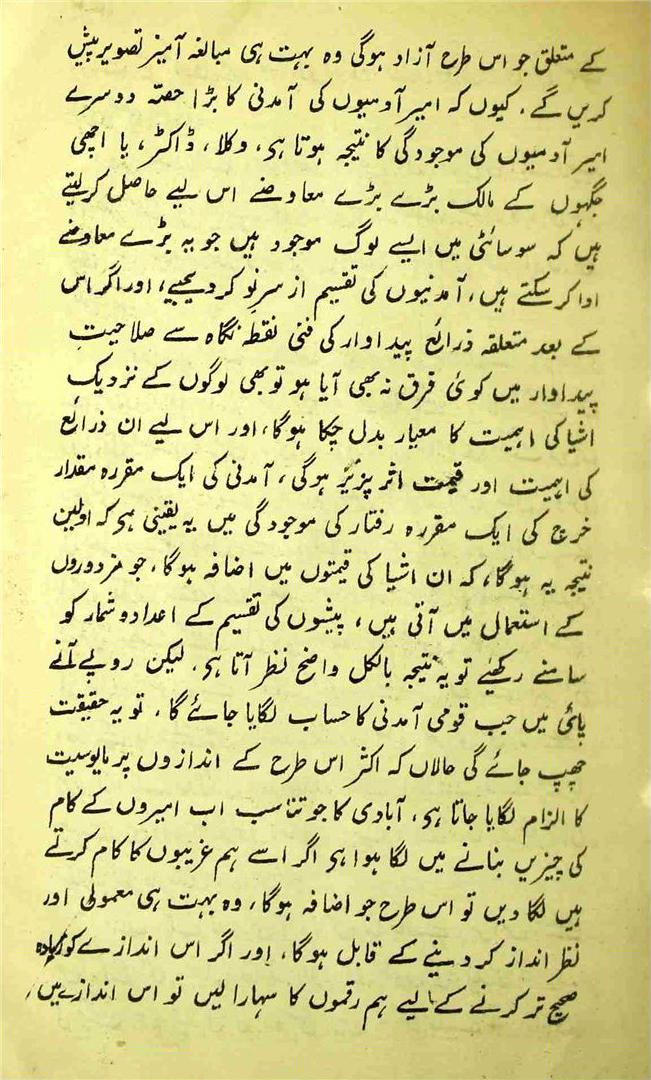 کے متعلق جو اس طرح آزاد ہوگی وہ بہت ہی مبالغہ آمیز تصویر پیش
کریں گے۔ کیوں کہ امیر آدمیوں کی آمدنی کا بڑا حصّہ دوسرے
امیر آدمیوں کی موجودگی کا نتیجہ ہوتا ہی، وکلا، ڈاکٹر، یا اچھی
جگہوں کے مالک بڑے بڑے معاوضے اس لیے حاصل کرلیتے
ہیں کہ سوسائٹی میں ایسے لوگ موجود ہیں جو یہ بڑے معاوضے
ادا کرسکتے ہیں، آمدنیوں کی تقسیم از سرِنو کر دیجیے، اور اگر اس
کے بعد متعلقہ ذرائع پیداوار کی فنی نقطۂ نگاہ سے صلاحیتِ
پیداوار میں کوئی فرق نہ بھی آیا ہو تو بھی لوگوں کے نزدیک
اشیا کی اہمیت کا معیار بدل چکا ہوگا، اور اس لیے ان ذرائع
کی اہمیت اور قیمت اثر پزیر ہوگی، آمدنی کی ایک مقررہ مقدار
خرچ کی ایک مقررہ رفتار کی موجودگی میں یہ یقینی ہی کہ اولین
نتیجہ یہ ہوگا، کہ ان اشیا کی قیمتوں میں اضافہ ہوگا، جو مزدوروں
کے استعمال میں آتی ہیں، پیشوں کی تقسیم کے اعداد و شمار کو
سامنے رکھیے تو یہ نتیجہ بالکل واضح نظر آتا ہی۔ لیکن روپے آنے
پائی میں جب قومی آمدنی کا حساب لگایا جائے گا۔ تو یہ حقیقت
چھپ جائے گی حالاں کہ اکثر اس طرح کے اندازوں پر مایوسیت
کا الزام لگایا جاتا ہی، آبادی کا جو تناسب اب امیروں کے کام
کی چیزیں بنانے میں لگا ہوا ہی اگر اسے ہم غریبوں کا کام کرتے
ہیں لگا دیں تو اس طرح جو اضافہ ہوگا، وہ بہت ہی معمولی اور
نظر انداز کر دینے کے قابل ہوگا، اور اگر اس اندازے کو زیادہ
صحیح تر کرنے کے لیے ہم رقموں کا سہارا لیں تو اس اندازے میں،